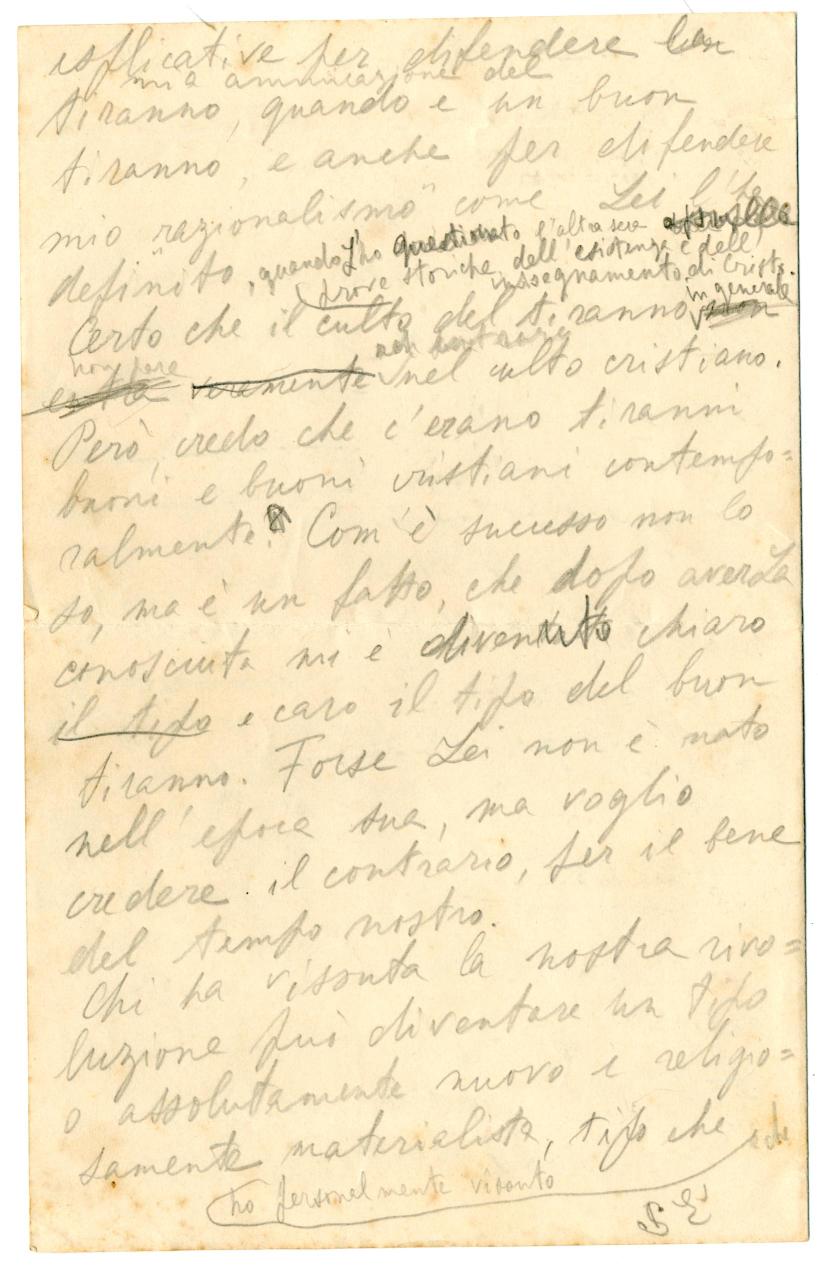 esplicative per difendere la
mia ammirazione del
tiranno, quando è un buon
tiranno, e anche per difendere
mio "razionalismo" come Lei l'ha
definito, quando L'ho questionato l'altra sera sulle
prove storiche dell'esistenza e dell'
inssegnamento di Cristo.
Certo che il culto del tiranno in generale non
non pare
esita veramente non nel culto cristiano.
Però, credo che c'erano tiranni
buoni e buoni cristiani contempo=
ralmente. Com'è successo non lo
so, ma è un fatto, che dopo averLa
conosciuta mi è divenuto chiaro
il tipo e caro il tipo del buon
tiranno. Forse Lei non è nato
nell'epoca sua, ma voglio
credere il contrario, per il bene
del tempo nostro.
Chi ha vissuta la nostra rivo=
luzione può diventare un tipo
o assolutamente nuovo e religio=
samente materialista, tipo che
ho personelmente vissuto